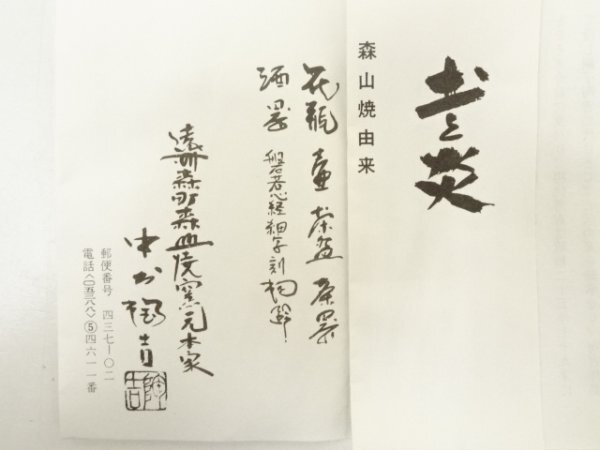 土と炎
森山焼由来
花瓶 壷 茶盌 茶器
酒器 般若心経細字刻
遠州森町森山焼窯元本家
中村陶吉
郵便番号 四三七−〇二
電話〈〇五三八八〉⑤四六一一番
陶吉